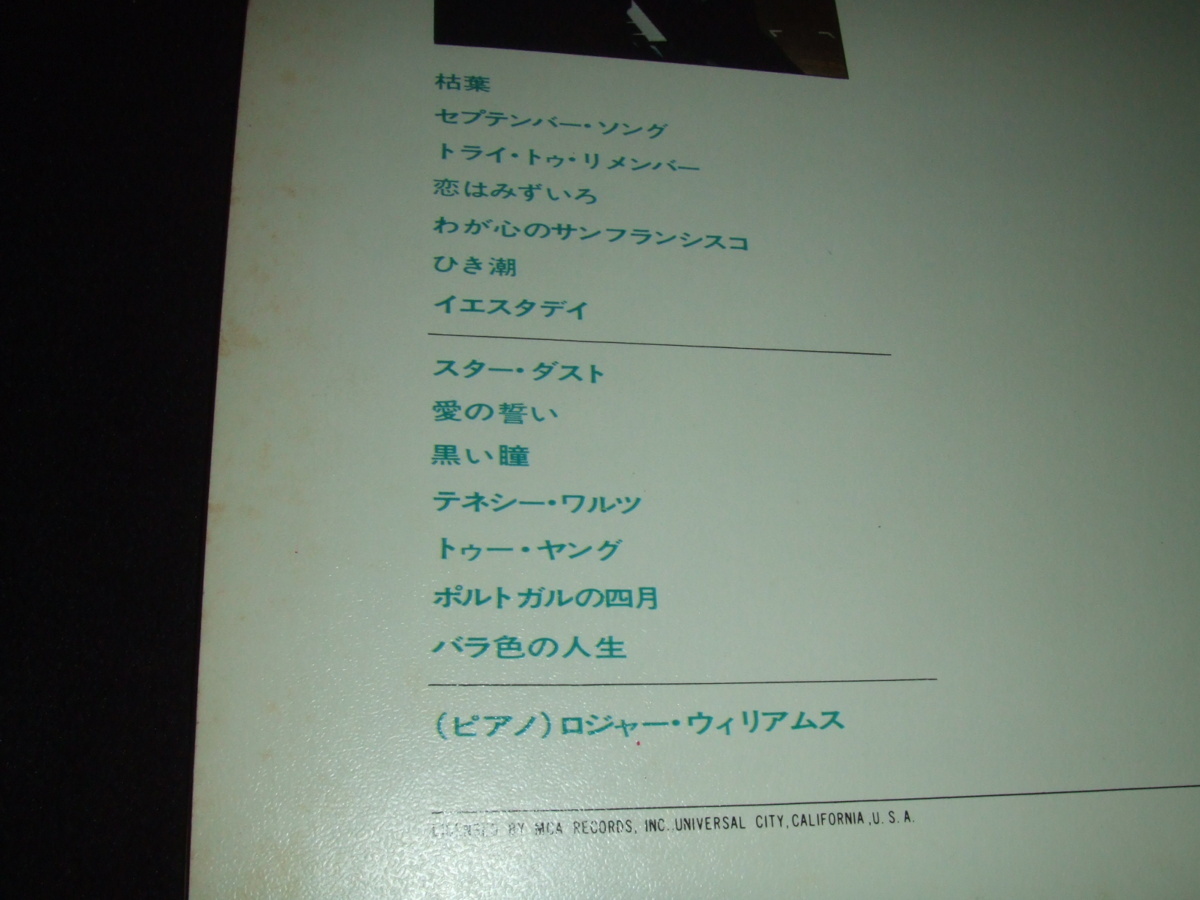 枯葉
セプテンバー・ソング
トライ・トゥ・リメンバー
恋はみずいろ
わが心のサンフランシスコ
ひき潮
イエスタデイ
スター・ダスト
愛の誓い
黒い瞳
テネシー・ワルツ
トゥー・ヤング
ポルトガルの四月
バラ色の人生
(ピアノ)ロジャー・ウィリアムス
LICENSED BY MCA RECORDS, INC. UNIVERSAL CITY, CALIFORNIA, U.S.A.